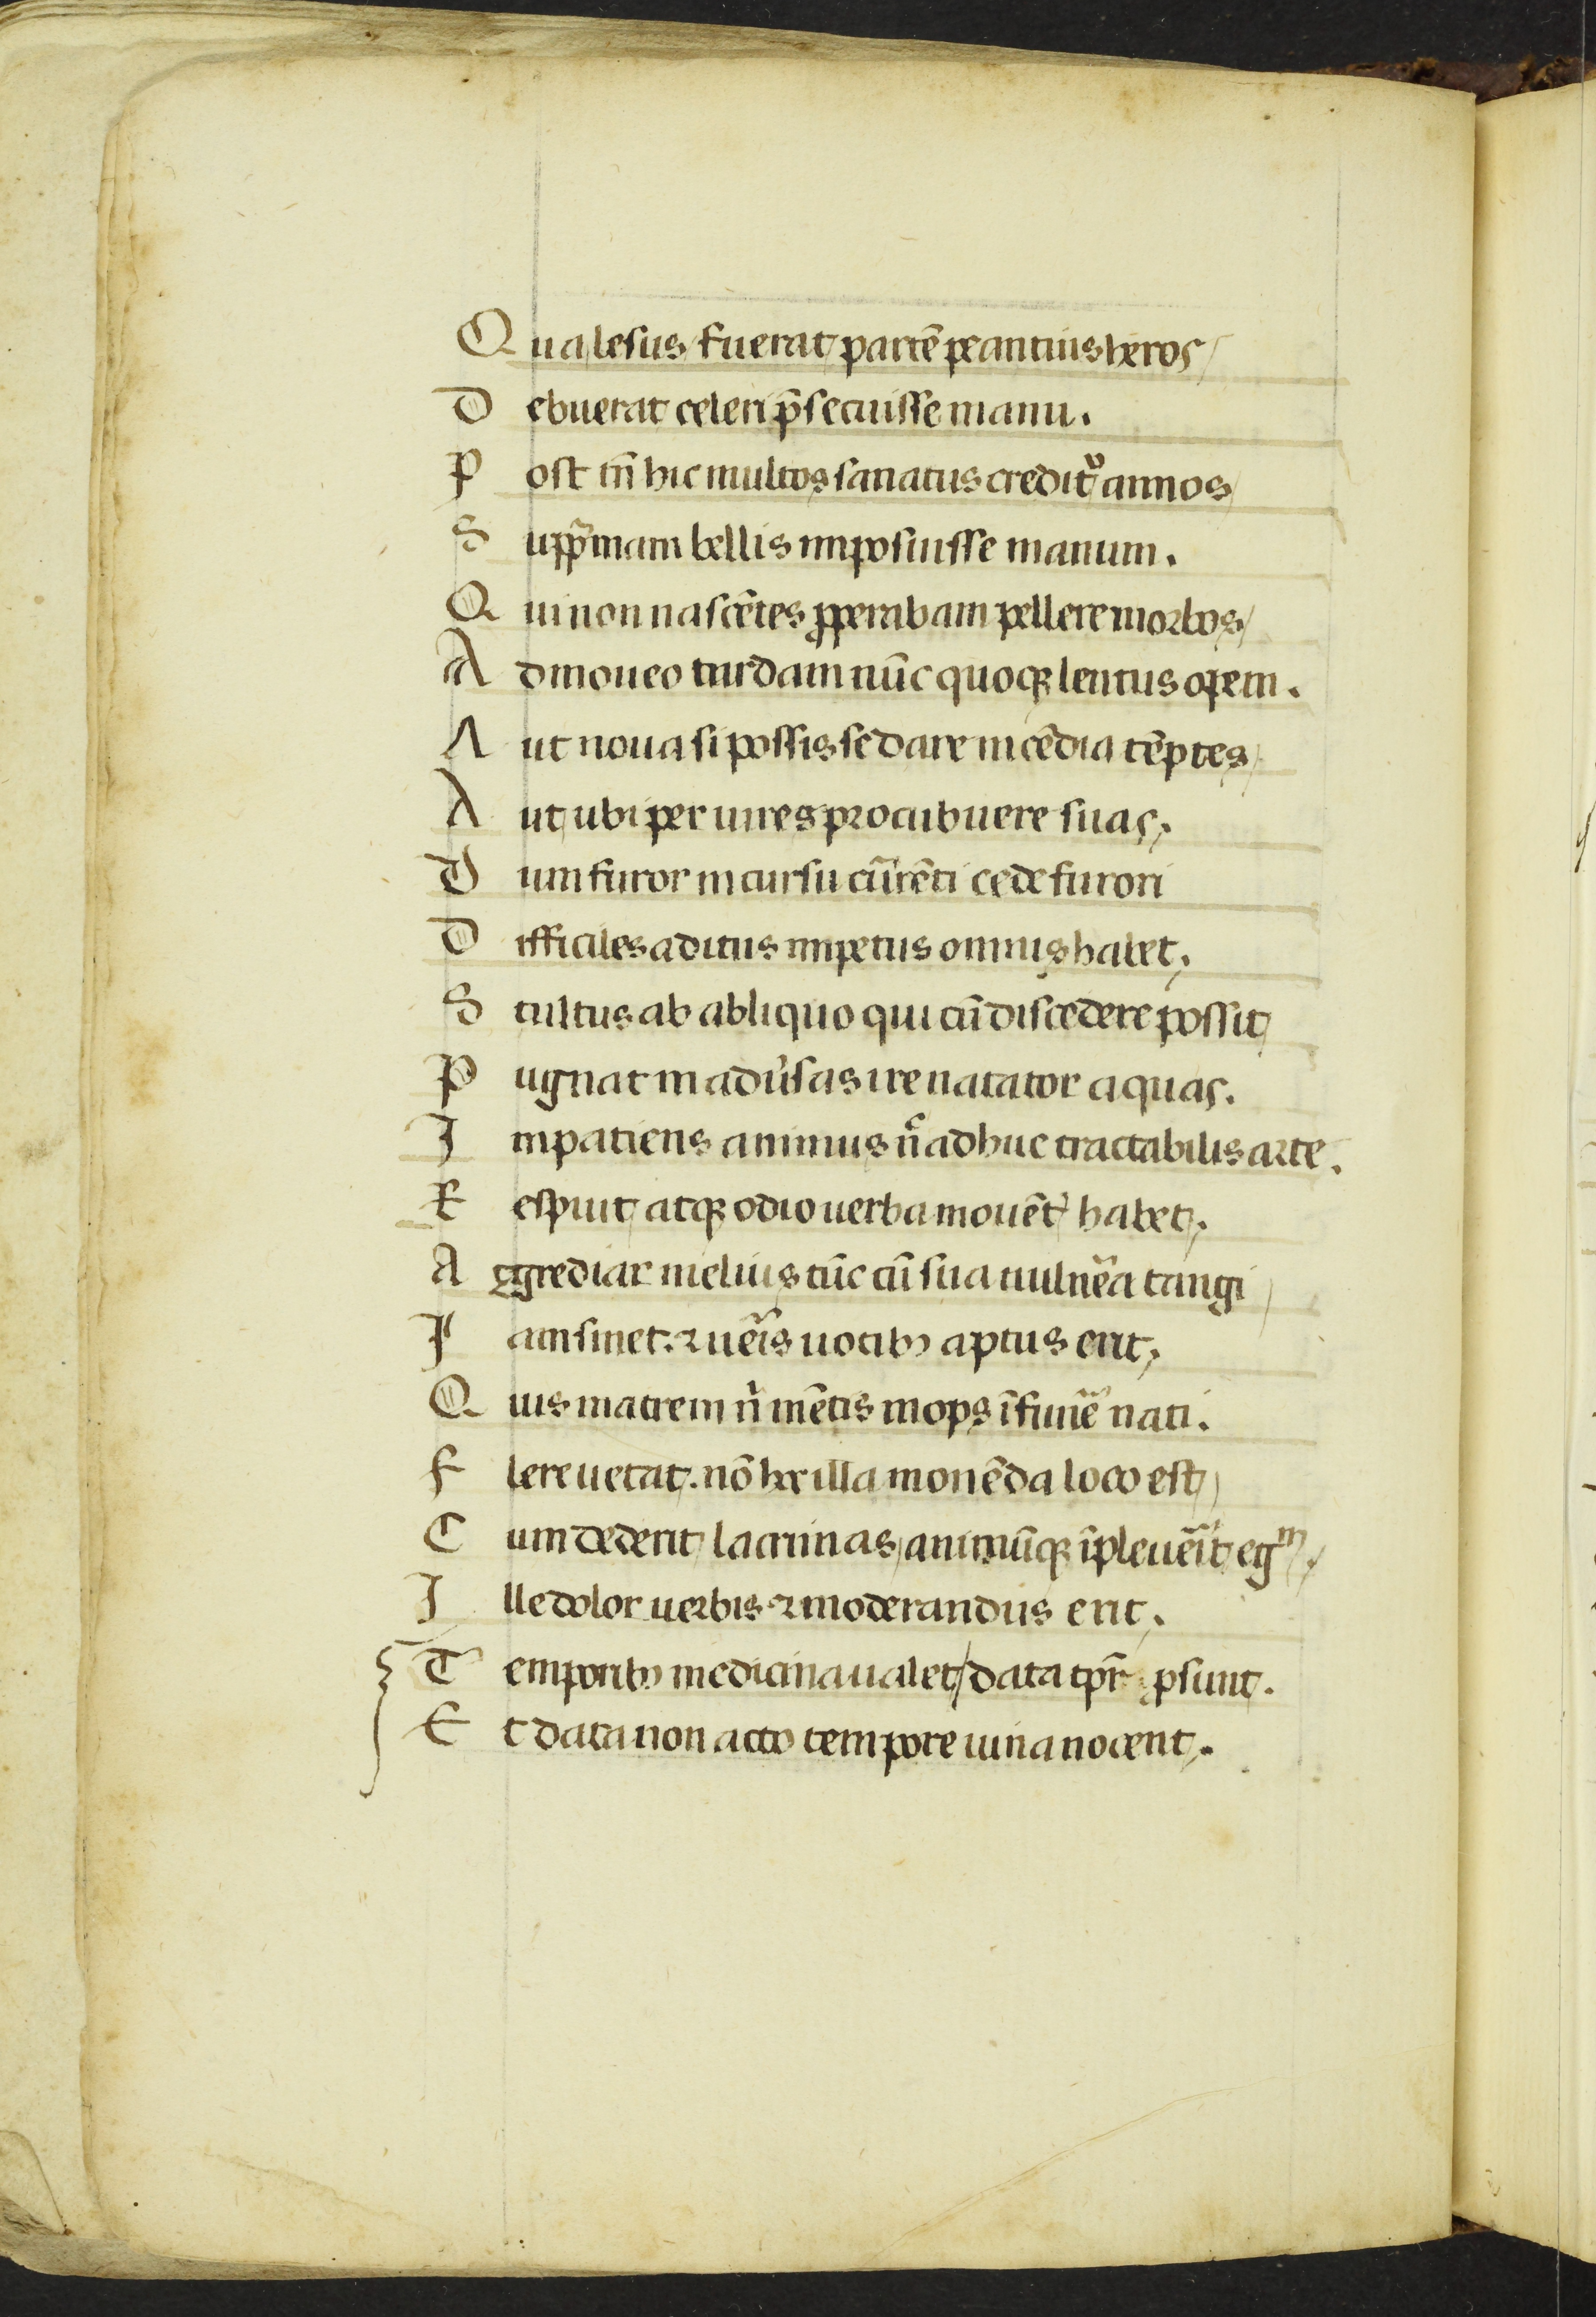 Qua lesus fuerat partē peantius heros
Debuerat celeri p̄secuisse manu.
Post tn̄ hic multos sanatus credit᷑ annos
Supp̄mam bellis imposuisse manum.
Qui non nascētes ꝓperabam pellere morbos
Admoueo tardam nūc quoqꝫ lentus opem.
Aut noua si possis sedare incēdia tēptes
Aut ubi per uires procubuere suas.
Dum furor in cursu cūrenti cede furori
Difficiles aditus impetus omnis habet.
Stultus ab abliquo qui cū discedere possit
Pugnat in adu͛sas ire natator aquas.
Impatiens animus n̄ adhuc tractabilis arte.
Respuit atqꝫ odio uerba monēt͛ habet.
Aggrediar melius tūc cū sua uulnēa tangi
Iam sinet. ⁊ uēis uocibꝫ aptus erit.
Quis matrem n̄ mētis inops ī funē nati.
Flere uetat. nō hec illa monēda loco est
Cum dederit lacrimas animūqꝫ īpleuēit egᵐ.
Ille dolor uerbis ⁊ moderandus erit.
Temporibꝫ medicina ualet data tpr̄ ꝓsunt.
Et data non acto tempore uina nocent.